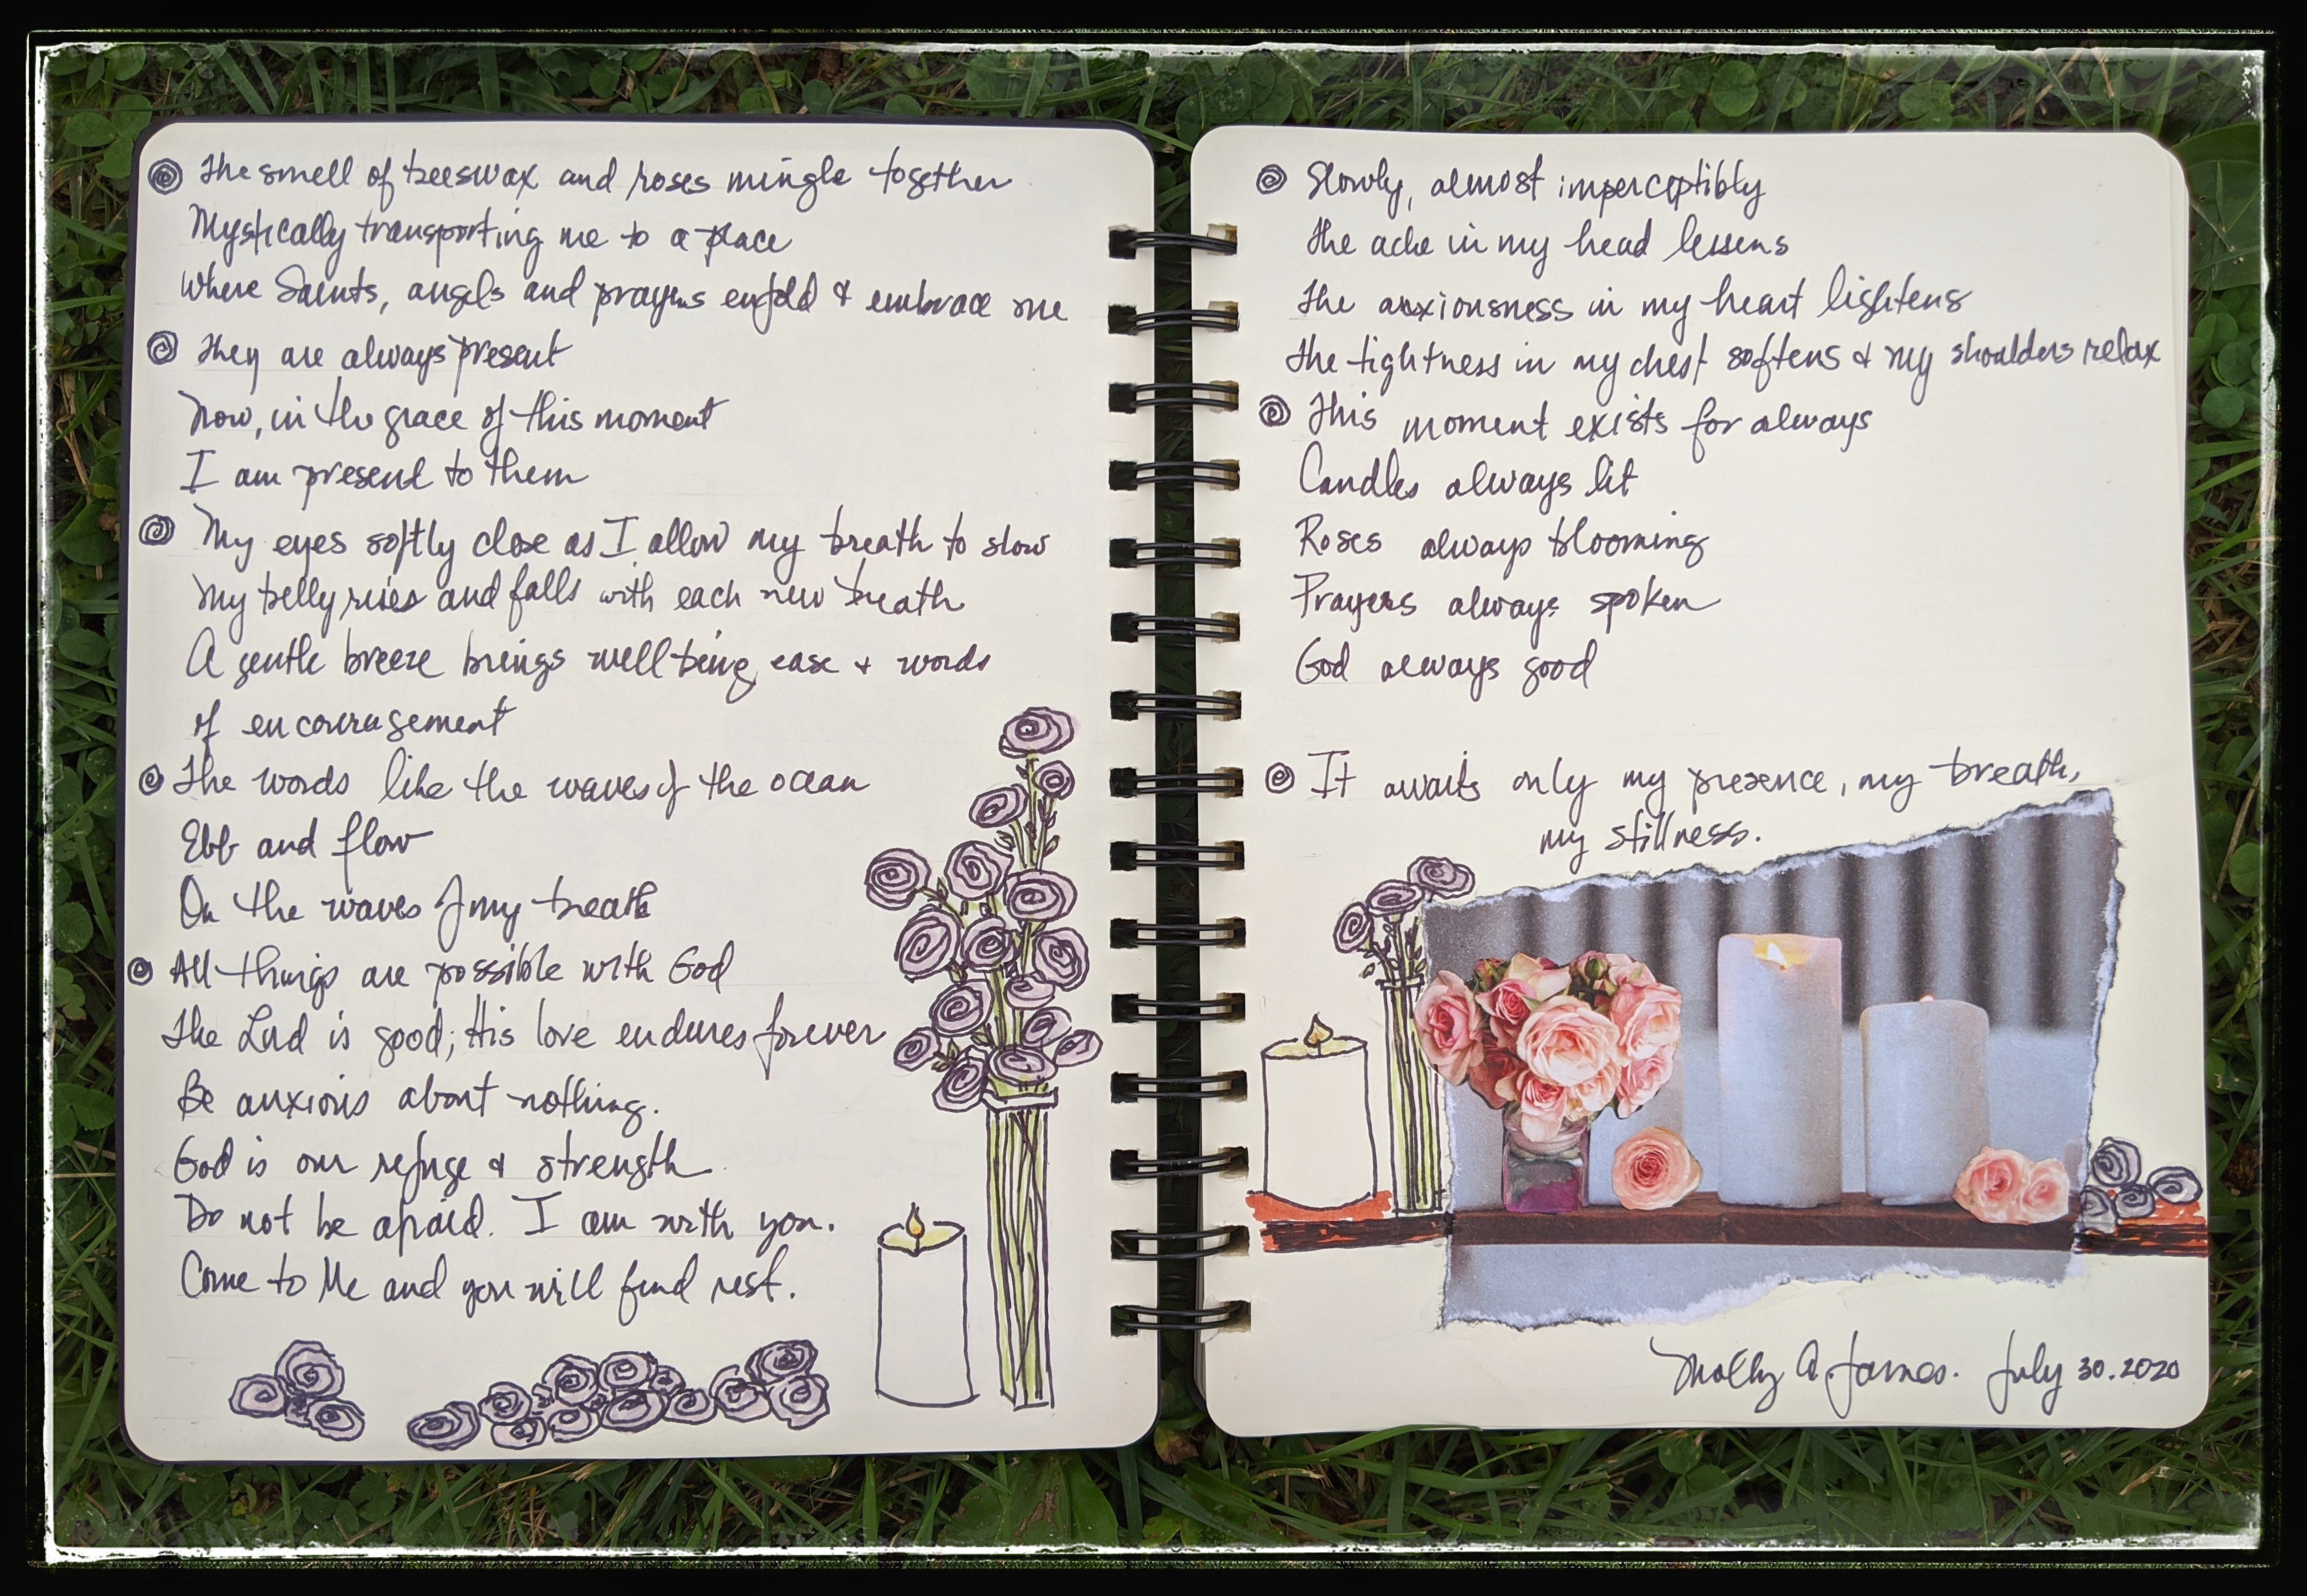 The smell of beeswax and roses mingle together
Mystically transporting me to a place
Where Saints, angels and prayers enfold & embrace me
They are always present
Now, in the grace of this moment
I am present to them
My eyes softly close as I allow my breath to slow
My belly rises and falls with each new breath
A gentle breeze brings well being, ease + words
of encouragement
The words like the waves of the ocean
Ebb and flow
On the waves of my breath
All things are possible with God
The Lord is good; His love endures forever
Be anxious about nothing.
God is our refuge & strength
Do not be afraid. I am with you.
Come to Me and you will find rest.
Slowly, almost imperceptibly
The ache in my head lessens
The anxiousness in my heart lightens
The tightness in my chest softens & my shoulders relax
This moment exists for always
Candles always lit
Roses always blooming
Prayers always spoken
God always good
It awaits only my presence, my breath,
my stillness.
Molly A. James. July 30.2020